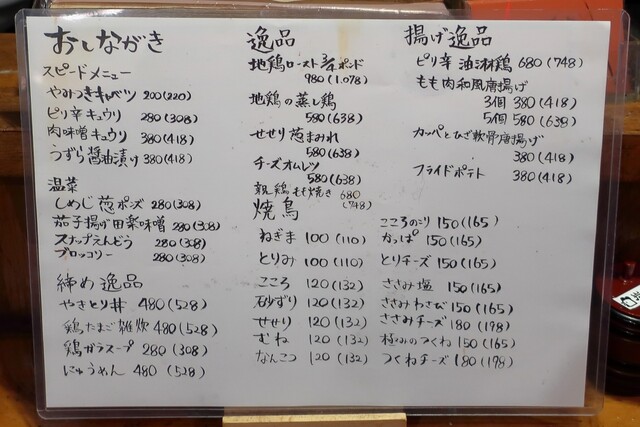 おしながき
スピードメニュー
やみつきキャベツ 200(220)
ピリ辛キュウリ 280(308)
肉味噌キュウリ 380(418)
うずら醤油漬け 380(418)
温菜
しめじ葱ポンズ 280(308)
茄子揚げ田楽味噌 280(308)
スナップえんどう 280(308)
ブロッコリー 280(308)
締め逸品
やきとり丼 480(528)
鶏たまご雑炊 480(528)
鶏ガラスープ 280(308)
にゅうめん 480(528)
逸品
地鶏ロースト3/4ポンド
980(1.078)
地鶏の蒸し鶏
580(638)
せせり葱まみれ
580(638)
チーズオムレツ
580(638)
親鶏もも焼き 680
(748)
焼鳥
ねぎま 100(110)
とりみ 100(110)
こころ 120(132)
砂ずり 120(132)
せせり 120(132)
むね 120(132)
なんこつ 120(132)
こころのこり 150(165)
かっぱ 150(165)
とりチーズ 150(165)
ささみ塩 150(165)
ささみわさび 150(165)
ささみチーズ 180(198)
極みのつくね 150(165)
つくねチーズ 180(198)
揚げ逸品
ピリ辛 油淋鶏 680(748)
もも肉和風唐揚げ
3個 380(418)
5個 580(638)
カッパとひざ軟骨唐揚げ
380(418)
フライドポテト 380(418)